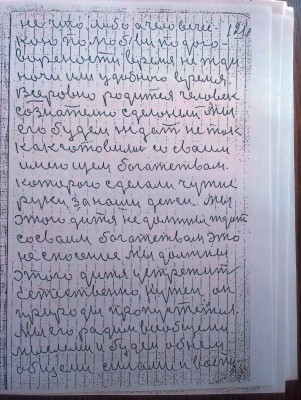 не что либо а чело вече-
кою по любви по дого-
вырености, время не жди
ночи или удобного время.
Всеровно родится человек
сознателно сделоний. Мы
его будем ждат не так
как готовими со своим
имеющем богатетвам.
которого сделали чужие
руки, за наши денги. Мы
этого дитя не должны ждат
со своим богатетвам это
на спосение. Мы должны
этого дитя устретит
естественно, нужен он
природи
Мы его ради
мыслями и будем об нем
общем силами